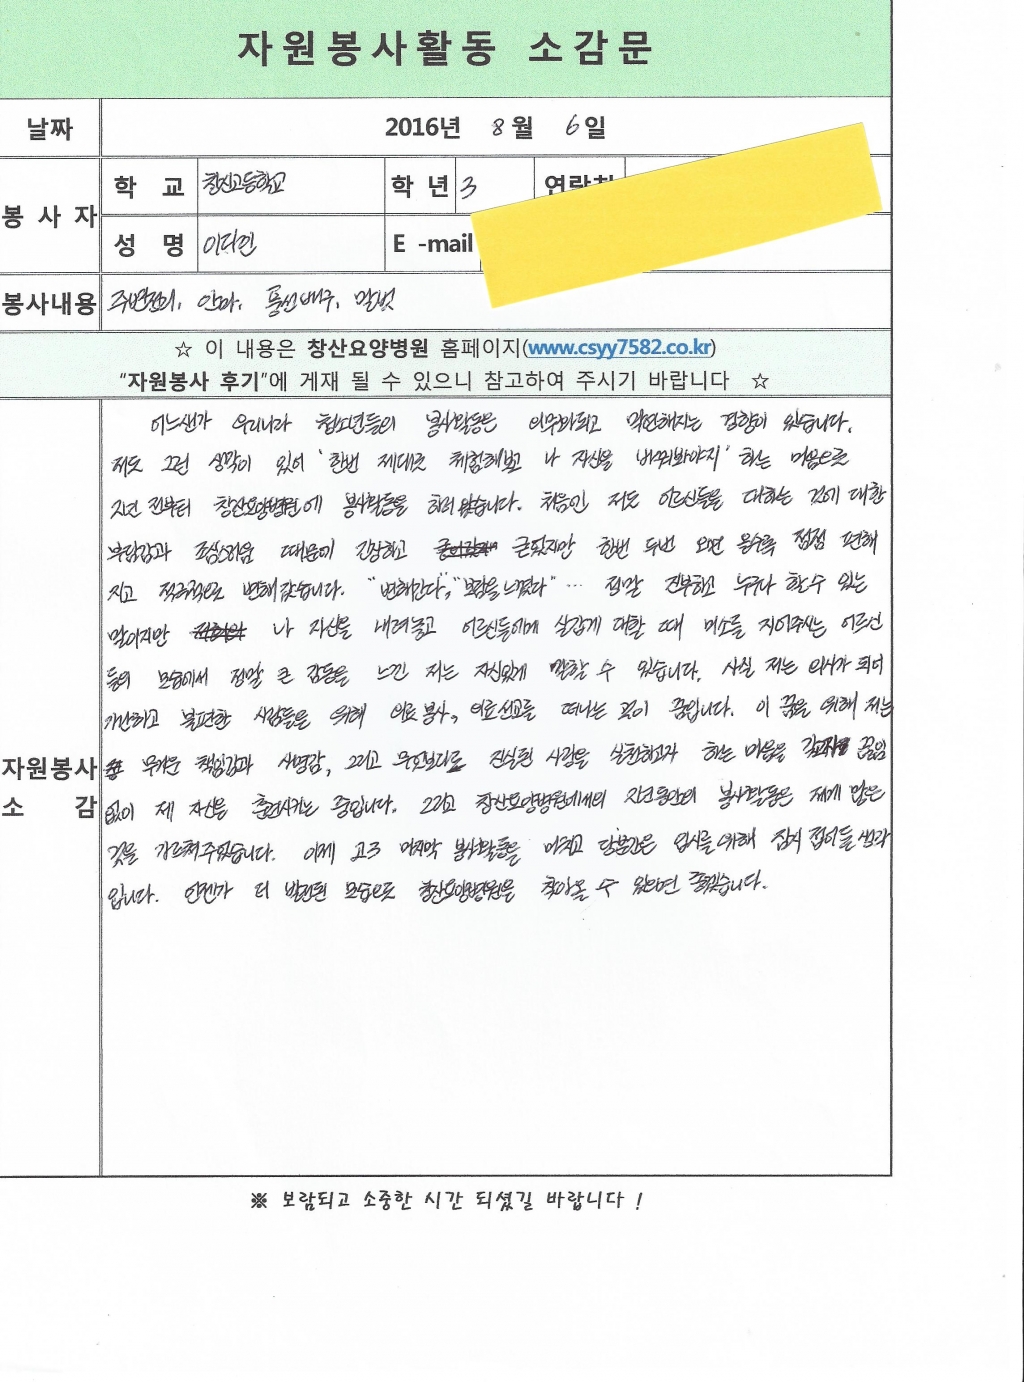 자원봉사활동 소감문
날짜 2016년 8월 6일
봉사자
학 교 창신고등학교 학 년 3 연락처
성 명 이다인 E -mail
봉사내용 주변정리, 안마, 풍선배구, 말벗
☆ 이 내용은 창산요양병원 홈페이지(www.csyy7582.co.kr)
“자원봉사 후기”에 게재 될 수 있으니 참고하여 주시기 바랍니다 ☆
자원봉사 소 감
어느샌가 우리나라 청소년들의 봉사활동은 의무화되고 막연해지는 경향이 있습니다.
저도 그런 생각이 있어 '한번 제대로 체험해보고 나 자신을 바꿔봐야지' 하는 마음으로
지난 전부터 창산요양병원에 봉사활동을 하러 왔습니다. 처음인 저도 어르신들을 대하는 것에 대한
부담감과 조심스러움 때문에 긴장하고 굳었지만 한번 두번 오면 올수록 점점 편해
지고 적극적으로 변해갔습니다. "변해간다", "보람을 느꼈다" … 정말 진부하고 누구나 할 수 있는
말이지만 나 자신을 내려놓고 어르신들에게 살갑게 대할 때 미소를 지어주시는 어르신
들의 모습에서 정말 큰 감동을 느낀 저는 자신있게 말할 수 있습니다. 사실 저는 의사가 되어
가난하고 불편한 사람들을 위해 의료 봉사, 의료선교를 떠나는 것이 꿈입니다. 이 꿈을 위해 저는
무거운 책임감과 사명감, 그리고 무엇보다도 진실된 사랑을 실천하고자 하는 마음을 갖고 끊임
없이 제 자신을 훈련시키는 중입니다. 그리고 창산요양병원에서의 지난동안의 봉사활동은 제게 많은
것을 가르쳐주었습니다. 이제 고3 마지막 봉사활동을 마치고 당분간은 입시를 위해 잠시 접어둘 생각
입니다. 언젠가 더 발전된 모습으로 창산요양병원을 찾아올 수 있으면 좋겠습니다.
※ 보람되고 소중한 시간 되셨길 바랍니다 !